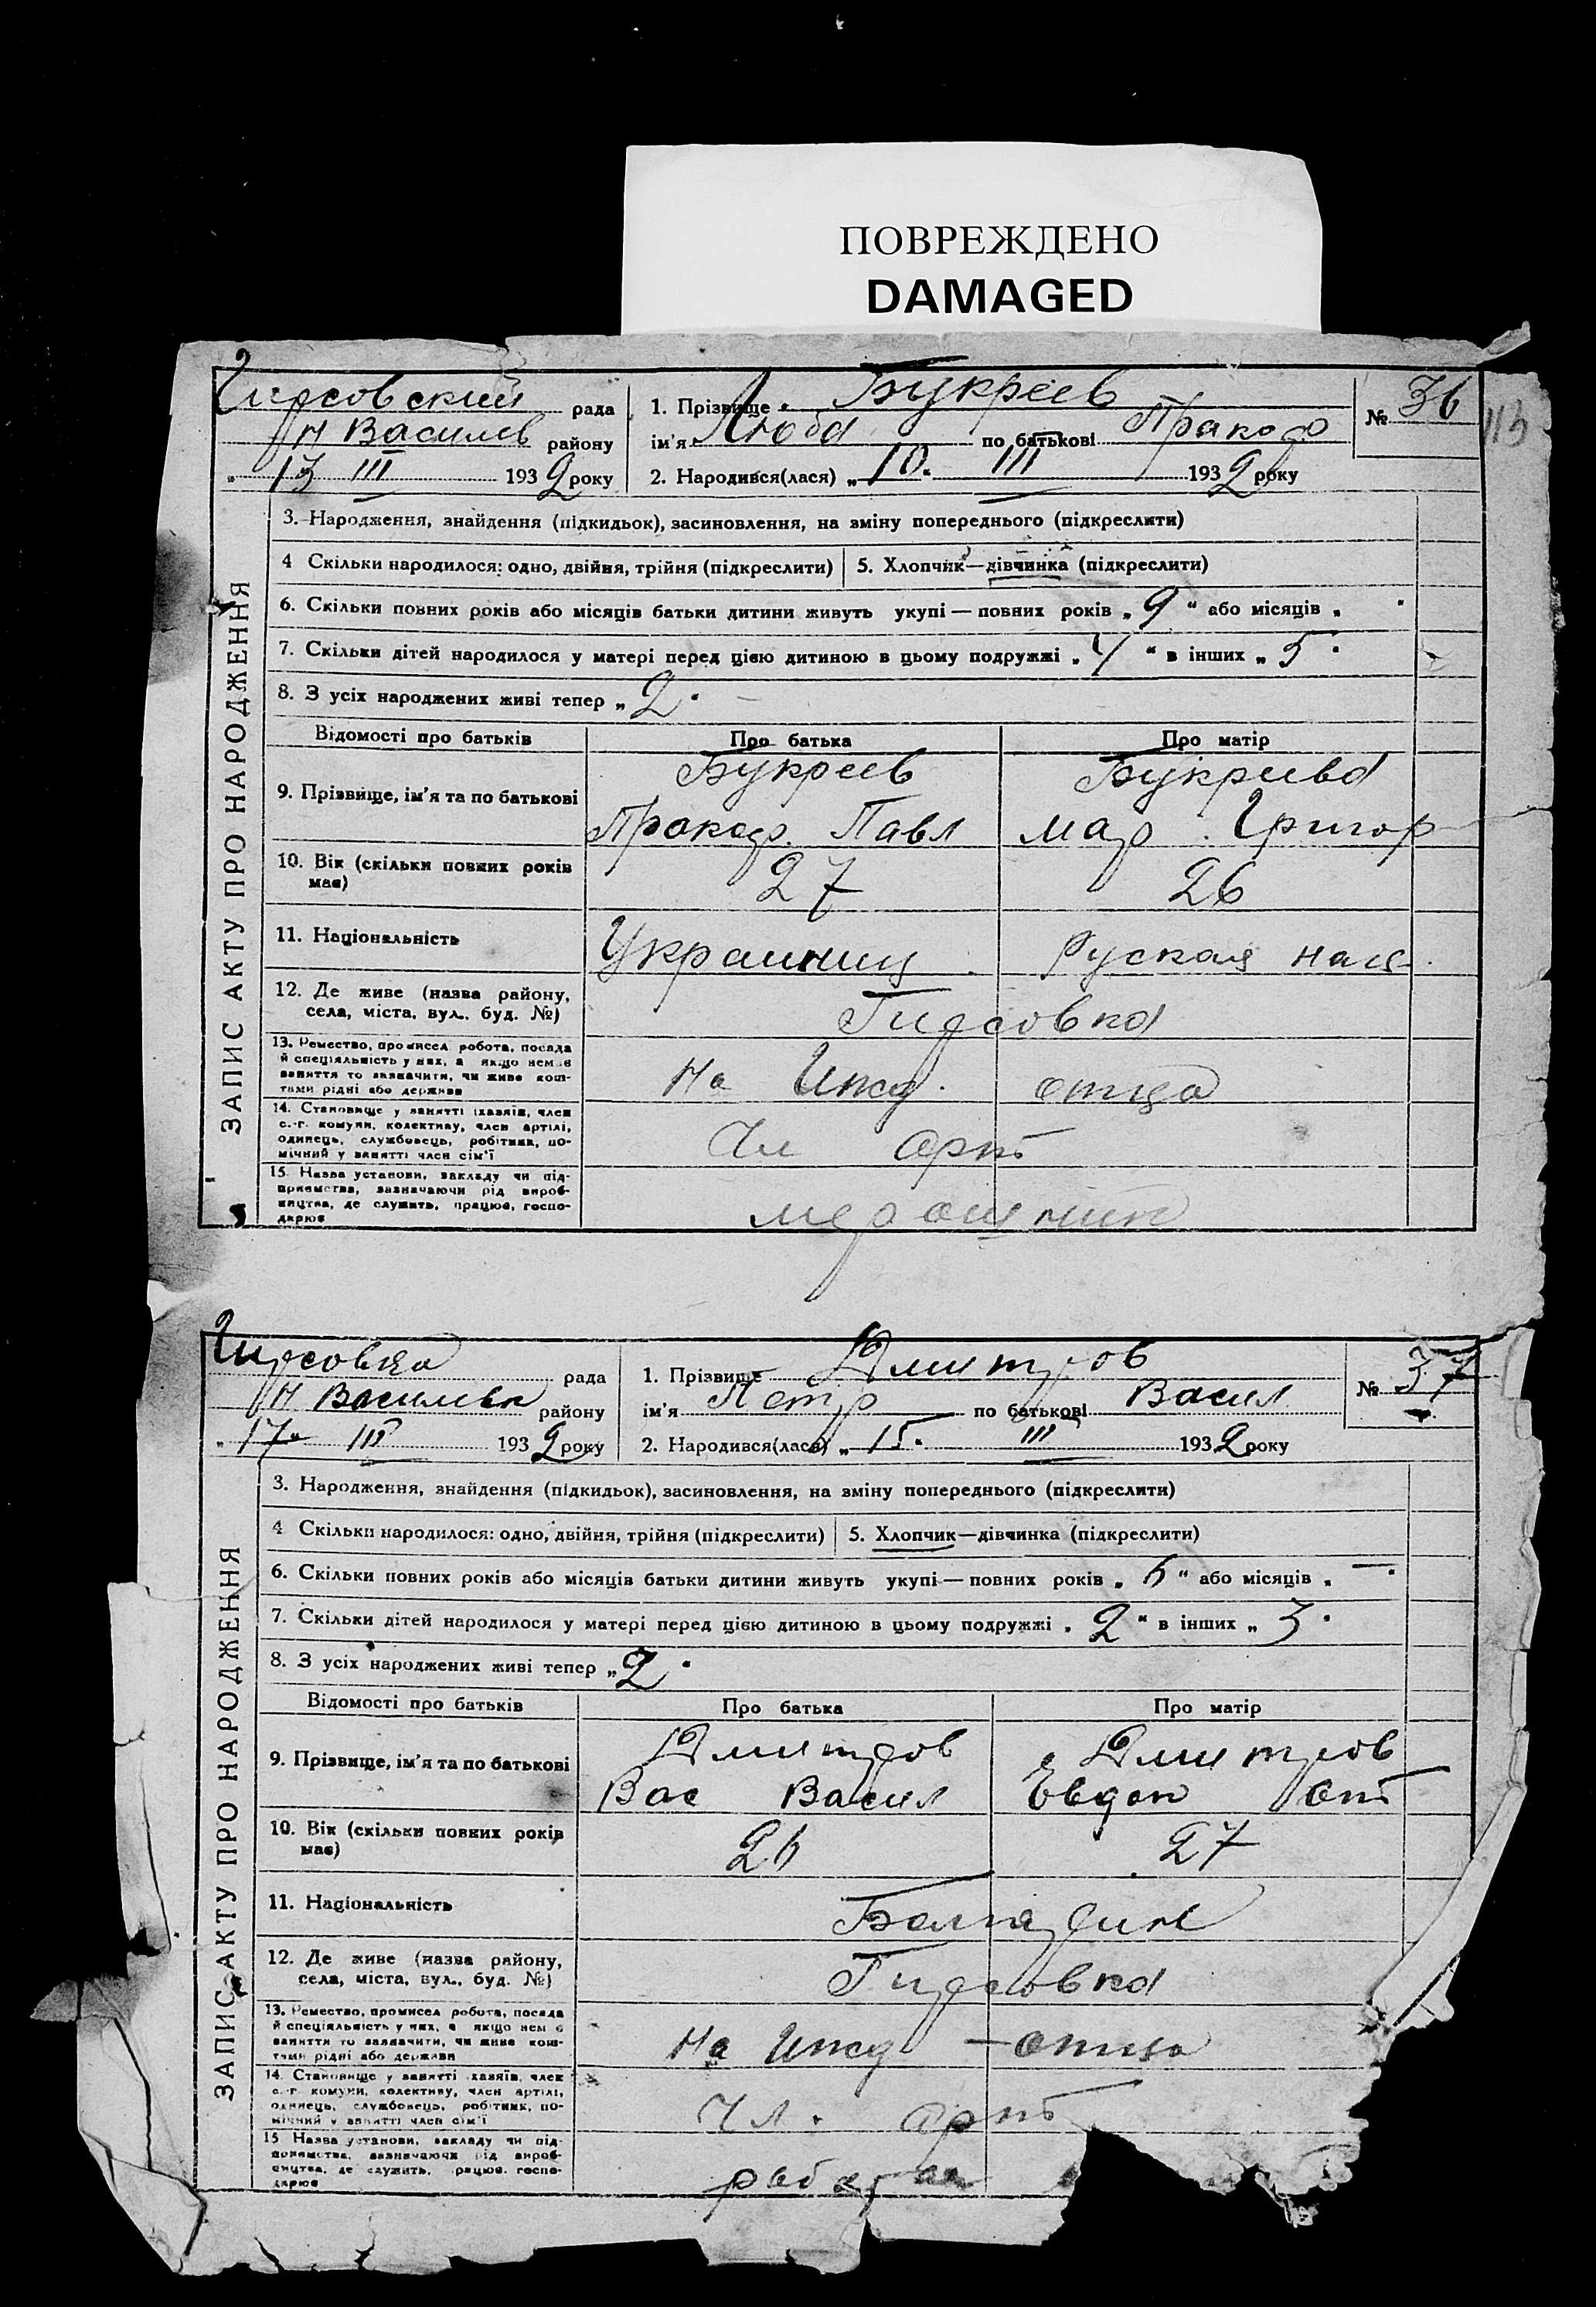 ПОВРЕЖДЕНО
DAMAGED
Гирсовский рада
Н Васильев району
„ 13 III 1932 року
1. Прізвище Букреев
ім'я Люба по батькові Пракоф
2. Народився(лася) „10. III 1932 року
№ 36
113
ЗАПИС АКТУ ПРО НАРОДЖЕННЯ
3. Народження, знайдення (підкидьок), засиновлення, на зміну попереднього (підкреслити)
4 Скільки народилося: одно, двійня, трійня (підкреслити) 5. Хлопчик—дівчинка (підкреслити)
6. Скільки повних років або місяців батьки дитини живуть укупі — повних років „ 9 “ або місяців „ "
7. Скільки дітей народилося у матері перед цією дитиною в цьому подружжі „ 4 “ в інших „ 5 "
8. З усіх народжених живі тепер „ 2 "
Відомості про батьків Про батька Про матір
9. Прізвище, ім'я та по батькові Букреев Букреева
Пракоф. Павл Мар. Григор
10. Вік (скільки повних років має) 27 26
11. Національність Украинец Руская нац.
12. Де живе (назва району, села, міста, вул., буд. №) Гирсовка
13. Ремество, промисел робота, посада й спеціяльність у них, а якщо немає заняття то зазначити, чи живе коштами рідні або держави На Ижд. отца
14. Становище у занятті (хазяїн, член с.-г. комуни, колективу, член артілі, одинець, службовець, робітник, помічний у занятті член сім'ї Чл арт
15. Назва установи, закладу чи підприємства, зазначаючи рід виробництва, де служить, працює, господарює
Гирсовка рада
Н Васильев району
„ 17 III 1932 року
1. Прізвище Дмитров
ім'я Петр по батькові Васил
2. Народився(лася) „ 15. III 1932 року
№ 37
ЗАПИС АКТУ ПРО НАРОДЖЕННЯ
3. Народження, знайдення (підкидьок), засиновлення, на зміну попереднього (підкреслити)
4 Скільки народилося: одно, двійня, трійня (підкреслити) 5. Хлопчик—дівчинка (підкреслити)
6. Скільки повних років або місяців батьки дитини живуть укупі — повних років „ 6 “ або місяців „ — "
7. Скільки дітей народилося у матері перед цією дитиною в цьому подружжі „ 2 “ в інших „ 3 "
8. З усіх народжених живі тепер „ 2 "
Відомості про батьків Про батька Про матір
9. Прізвище, ім'я та по батькові Дмитров Дмитров
Вас Васил Евдок
10. Вік (скільки повних років має) 26 27
11. Національність Болгарин
12. Де живе (назва району, села, міста, вул., буд. №) Гирсовка
13. Ремество, промисел робота, посада й спеціяльність у них, а якщо нем є заняття то зазначити, чи живе коштами рідні або держави На Ижд — отца
14. Становище у занятті (хазяїн, член с.-г комуни, колективу, член артілі, одинець, службовець, робітник, помічний у занятті член сім'ї Чл. арт
15 Назва установи, закладу чи підприємства, зазначаючи рід виробництва, де служить, працює, господарює